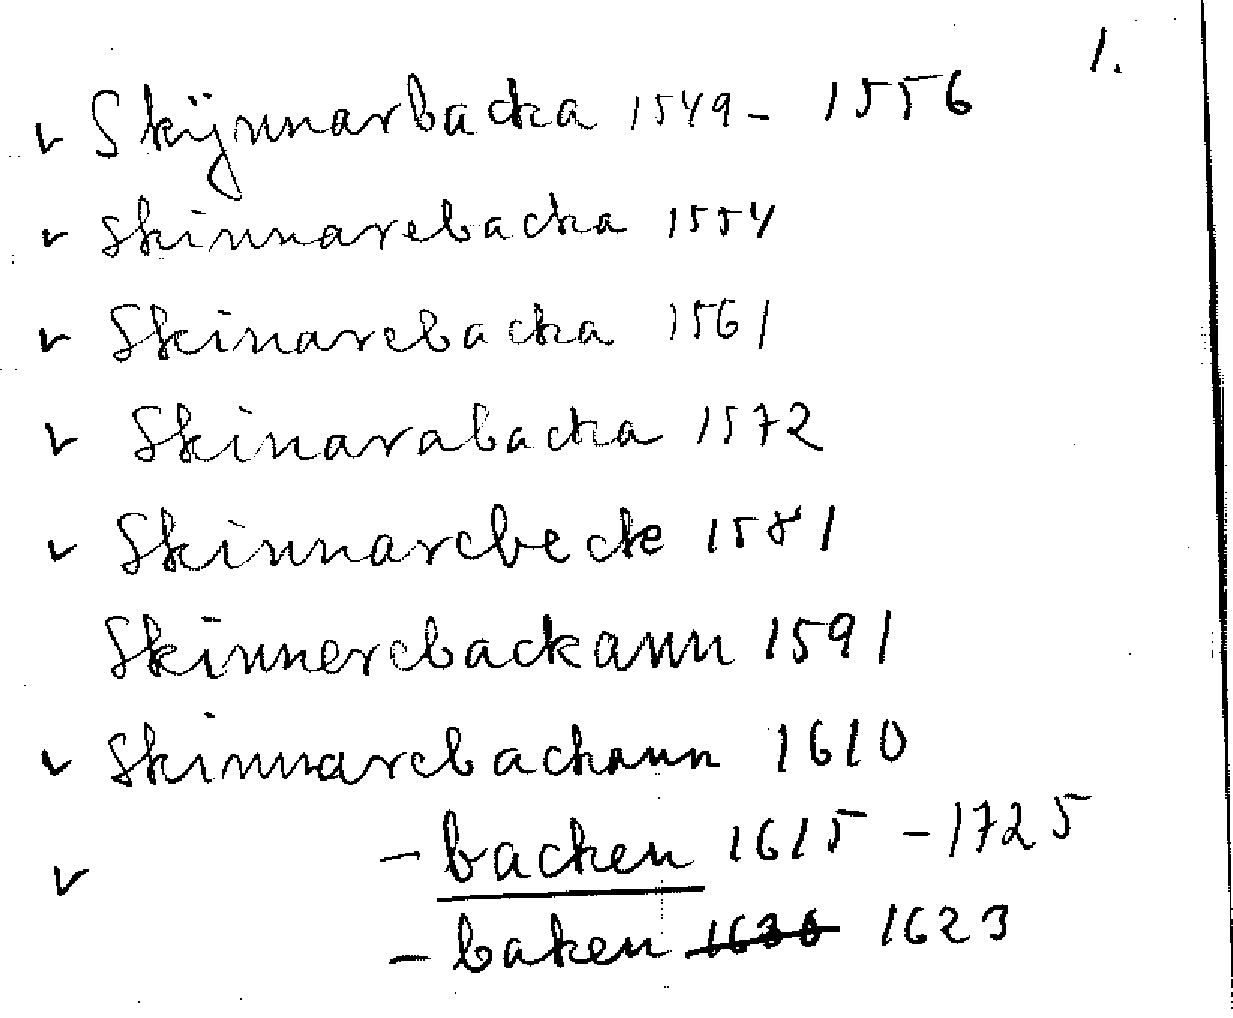 1.
✓ Skÿnnarbacka 1549- 1556
✓ Skinnarebacka 1554
✓ Skinarebacka 1561
✓ Skinarabacka 1572
✓ Skinnarebecke 1581
Skinnerebackann 1591
✓ Skinnarebackann 1610
✓ -backen 1615 -1725
-baken 1630 1623